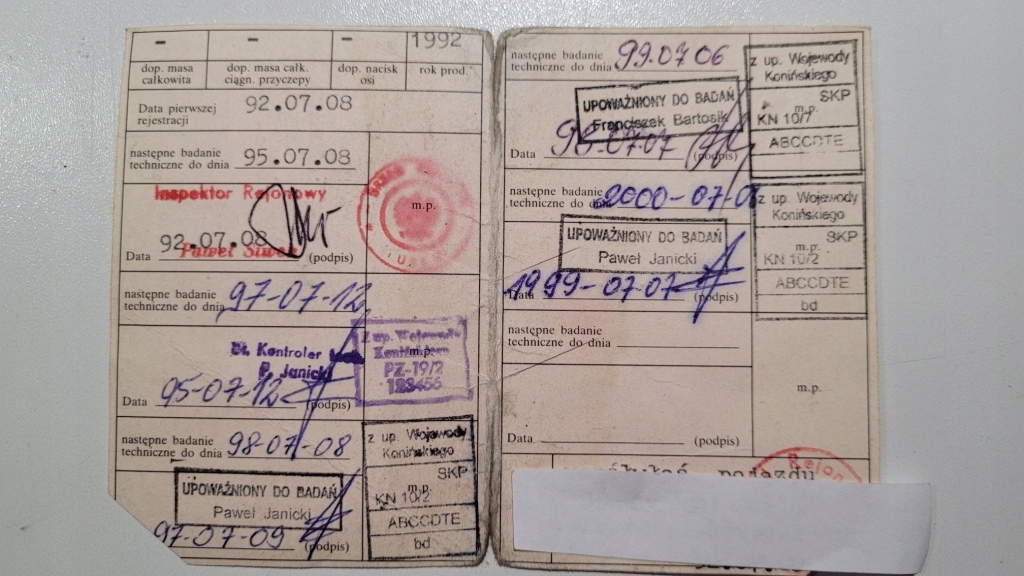 – – – 1992
dop. masa całkowita
dop. masa całk. ciągn. przyczepy
dop. nacisk osi
rok prod.
Data pierwszej rejestracji 92.07.08
następne badanie techniczne do dnia 95.07.08
Inspektor Rejonowy
m.p.
92.07.08
Paweł
Data (podpis)
następne badanie techniczne do dnia 97-07-12
St. Kontroler
P. Janicki
z up. Wojewody
Konińskiego
m.p.
PZ-19/2
123456
Data 95-07-12 (podpis)
następne badanie techniczne do dnia 98-07-08
UPOWAŻNIONY DO BADAŃ
Paweł Janicki
97-07-09 (podpis)
z up. Wojewody
Konińskiego
SKP
m.p.
KN 10/2
ABCCDTE
bd
następne badanie techniczne do dnia 99.07.06
UPOWAŻNIONY DO BADAŃ
Franciszek Bartosik
Data 98-07-07 (podpis)
z up. Wojewody
Konińskiego
SKP
m.p.
KN 10/7
ABCCDTE
następne badanie techniczne do dnia 2000-07-08
UPOWAŻNIONY DO BADAŃ
Paweł Janicki
Data 1999-07-07 (podpis)
z up. Wojewody
Konińskiego
SKP
m.p.
KN 10/2
ABCCDTE
bd
następne badanie
techniczne do dnia
m.p.
Data (podpis)
pojazdu